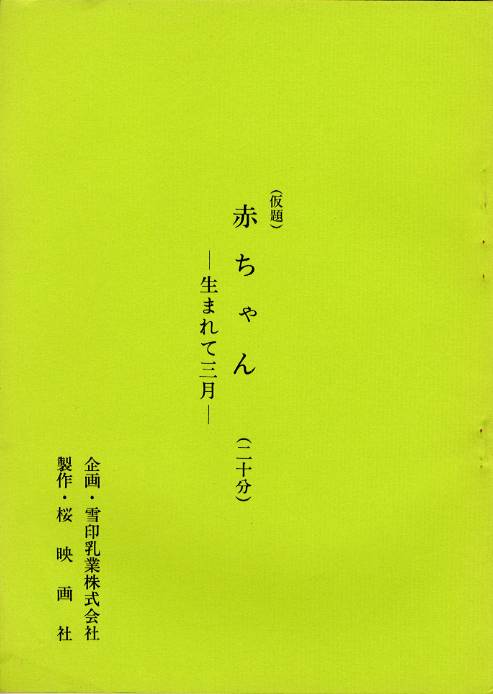 (仮題)
赤ちゃん (二十分)
―生まれて三月―
企画・雪印乳業株式会社
製作・桜映画社